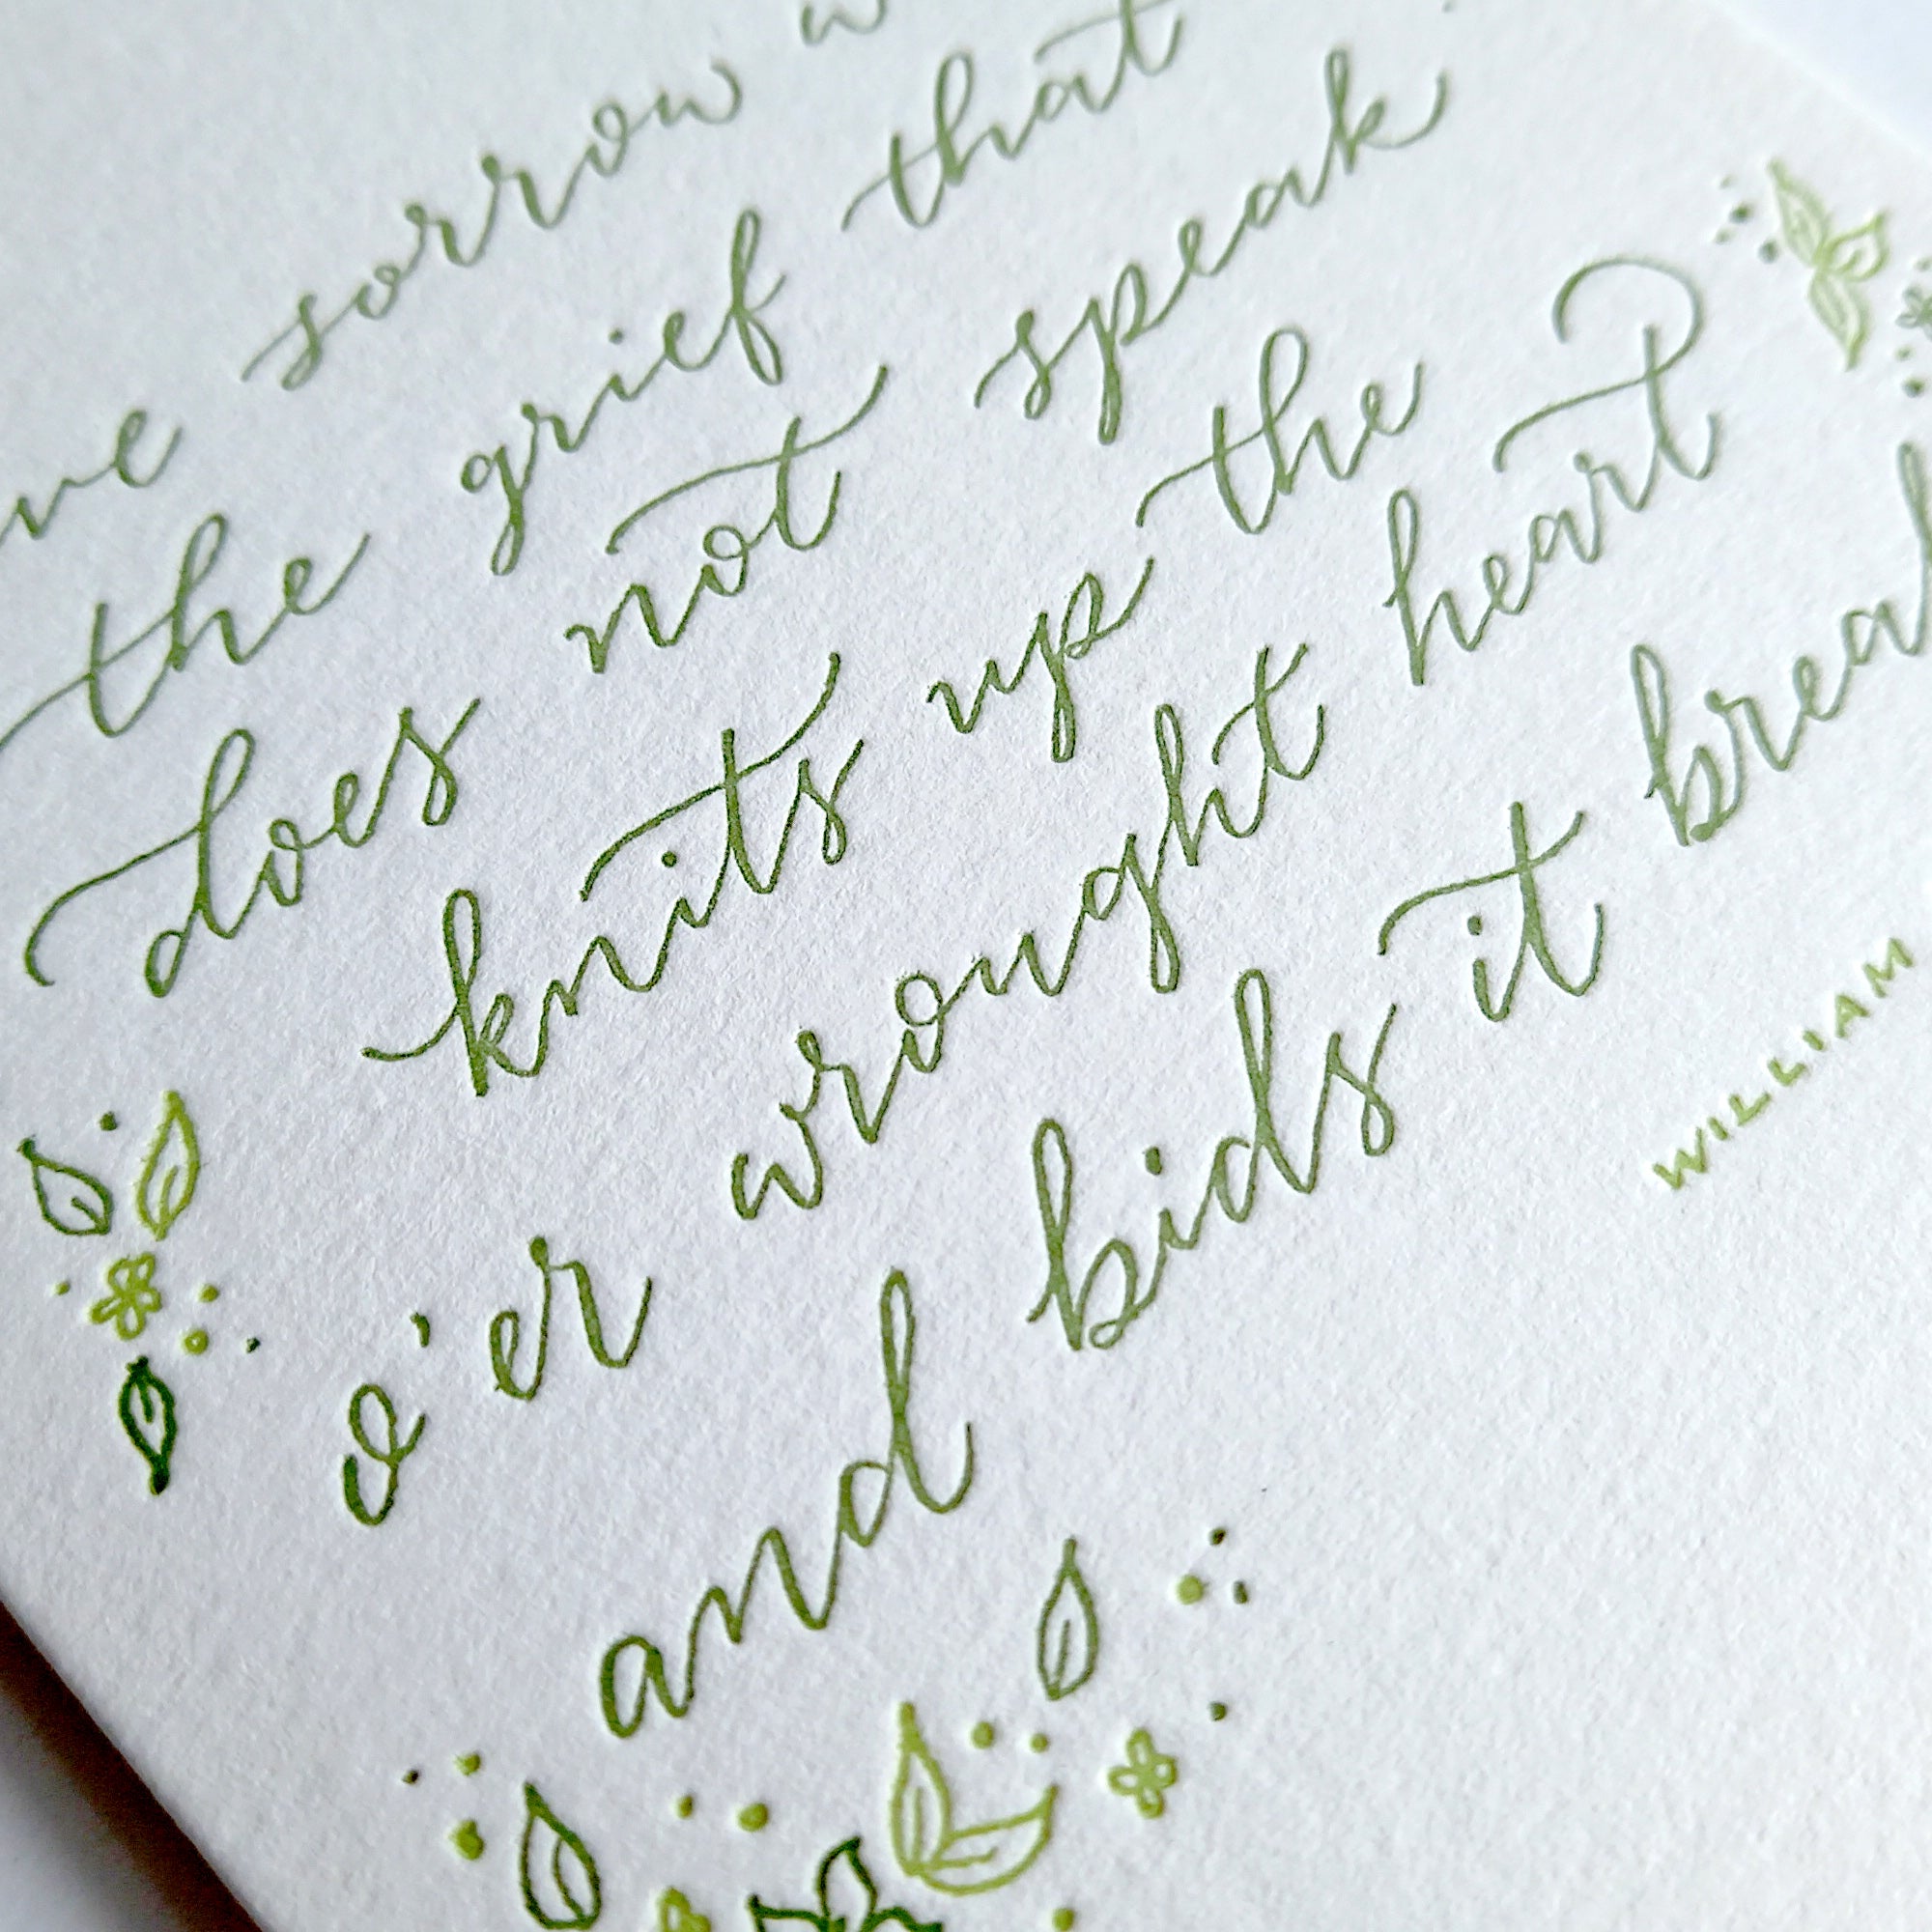 sorrow
the grief that
does not speak
knits up the
o'er wrought heart
and bids it
WILLIAM